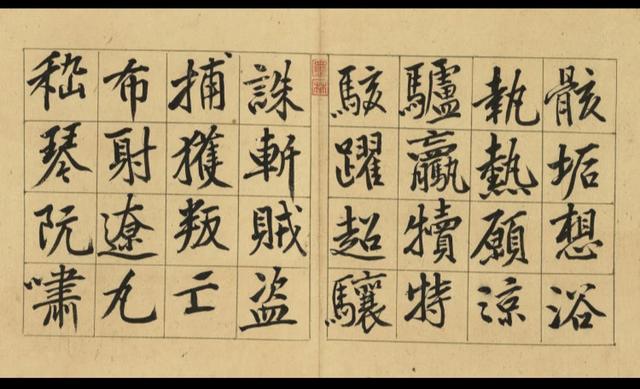 骸垢想浴
執熱願涼
驢驘犢特
駭躍超驤
誅斬賊盜
捕獲叛亡
布射遼丸
嵇琴阮嘯